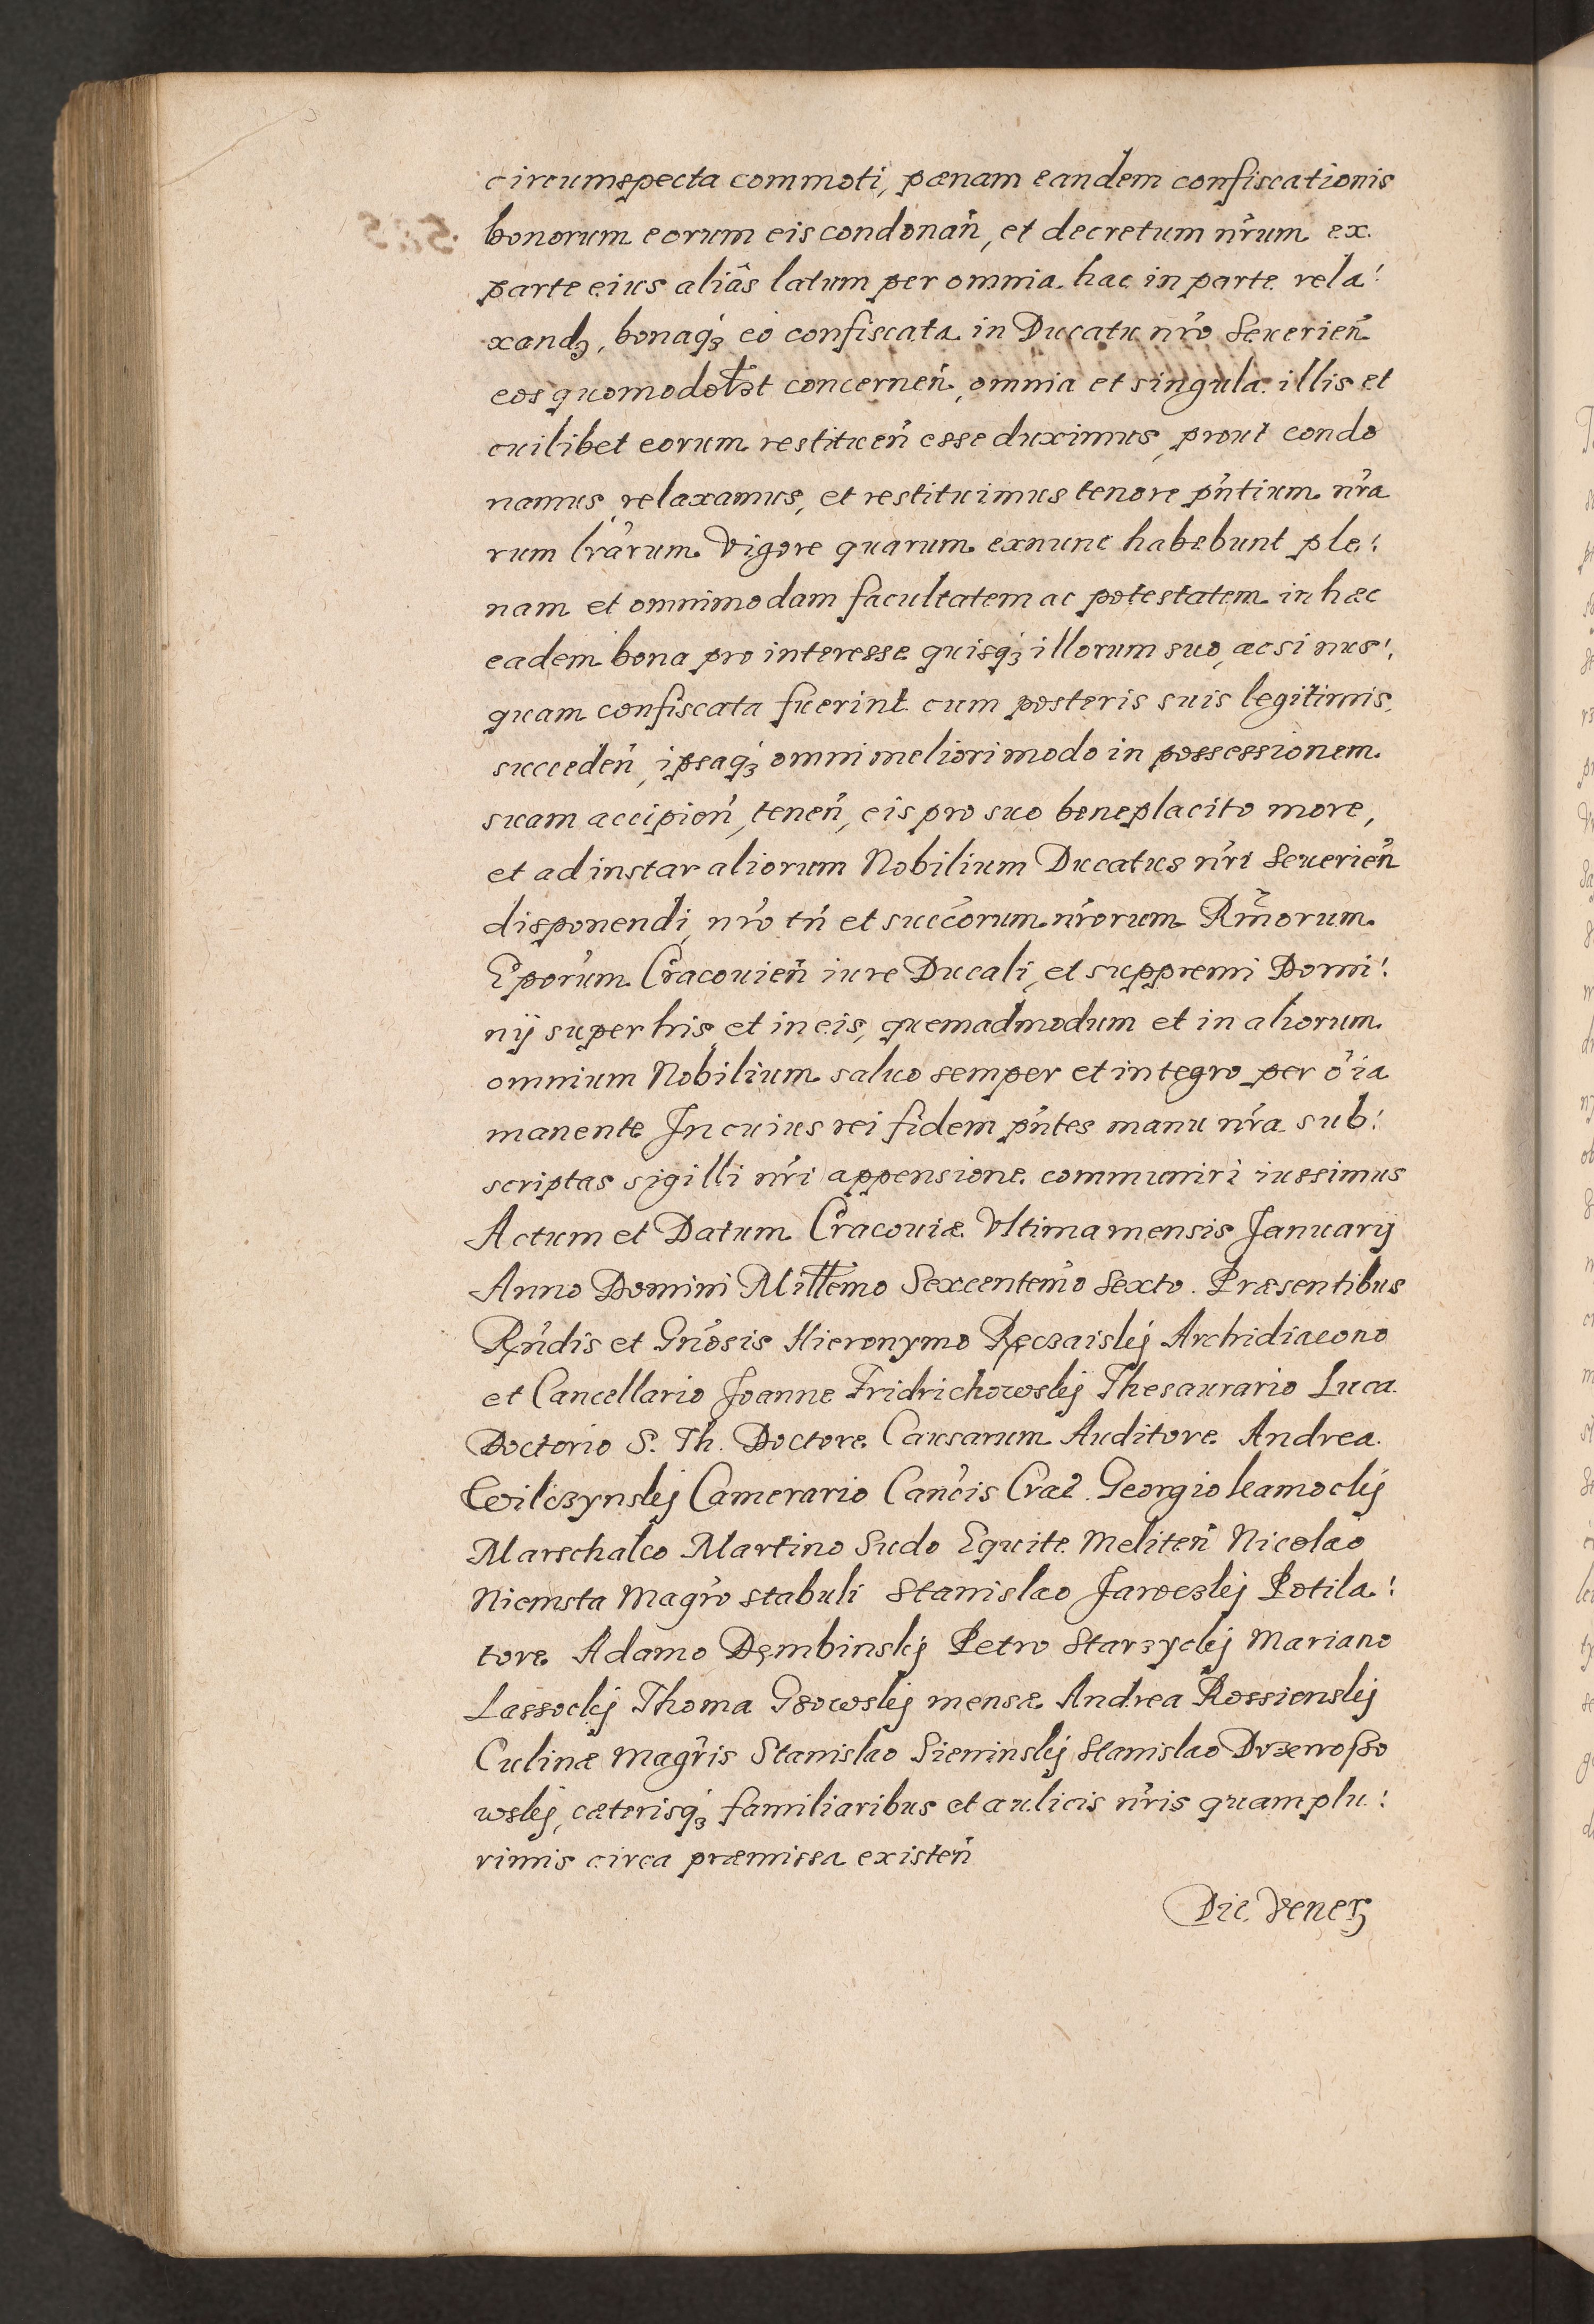 circumspecta commoti, pænam eandem confiscationis
bonorum eorum eis condonañ, et decretum nr̃um ex
parte eius aliâs latum per omnia hac in parte rela:
xandꝫ, bonaqꝫ eo confiscata in Ducatu nr̃o Seuerieñ
eos quomodolꝫt concerneñ, omnia et singula illis et
cuilibet eorum restitueñ esse duximus, prout condo
namus, relaxamus, et restituimus tenore pñtium nr̃a
rum lr̃arum. Vigore quarum exnunc habebunt ple:
nam et omnimodam facultatem ac potestatem in hæc
eadem bona pro interesse quisqꝫ illorum suo, acsi nus:
quam confiscata fuerint cum posteris suis legitimis
succedeñ, ipsaqꝫ omni meliori modo in possessionem
suam accipioñ, teneñ, eis pro suo beneplacito more,
et ad instar aliorum Nobilium Ducatus nr̃i Seuerieñ
disponendi, nr̃o tñ et succõrum nr̃orum Rm̃orum
Epõrum Cracouieñ iure Ducali, et suppremi Domi:
nij super his, et in eis, quemadmodum et in aliorum
omnium Nobilium saluo semper et integro per õia
manente In cuius rei fidem pñtes manu nr̃a sub:
scriptas sigilli nr̃i appensione communiri iussimus
Actum et Datum Cracouiæ Vltima mensis Januarij
Anno Domini Millẽmo Sexcentẽmo Sexto. Præsentibus
Rñdis et Gñosis Hieronymo Reczaiskj Archidiacono
et Cancellario Joanne Fridrichowskj Thesaurario Luca
Doctorio S. Th. Doctore Causarum Auditore Andrea
Wilczynskj Camerario Canc̃is Crac. Georgio Kamockj
Marschalco Martino Sudo Equite Meliteñ Nicolao
Niemsta Magr̃o stabuli Stanislao Jaroczkj Potila:
tore Adamo Dęmbinskj Petro Starzyckj Mariano
Lassockj Thoma Gsowskj mensæ Andrea Rossienskj
Culinæ Magr̃is Stanislao Sieninskj Stanislao Drzewoßo
wskj, cæterisqꝫ familiaribus et aulicis nr̃is quamplu:
rimis circa præmissa existeñ
Die Venerꝫ